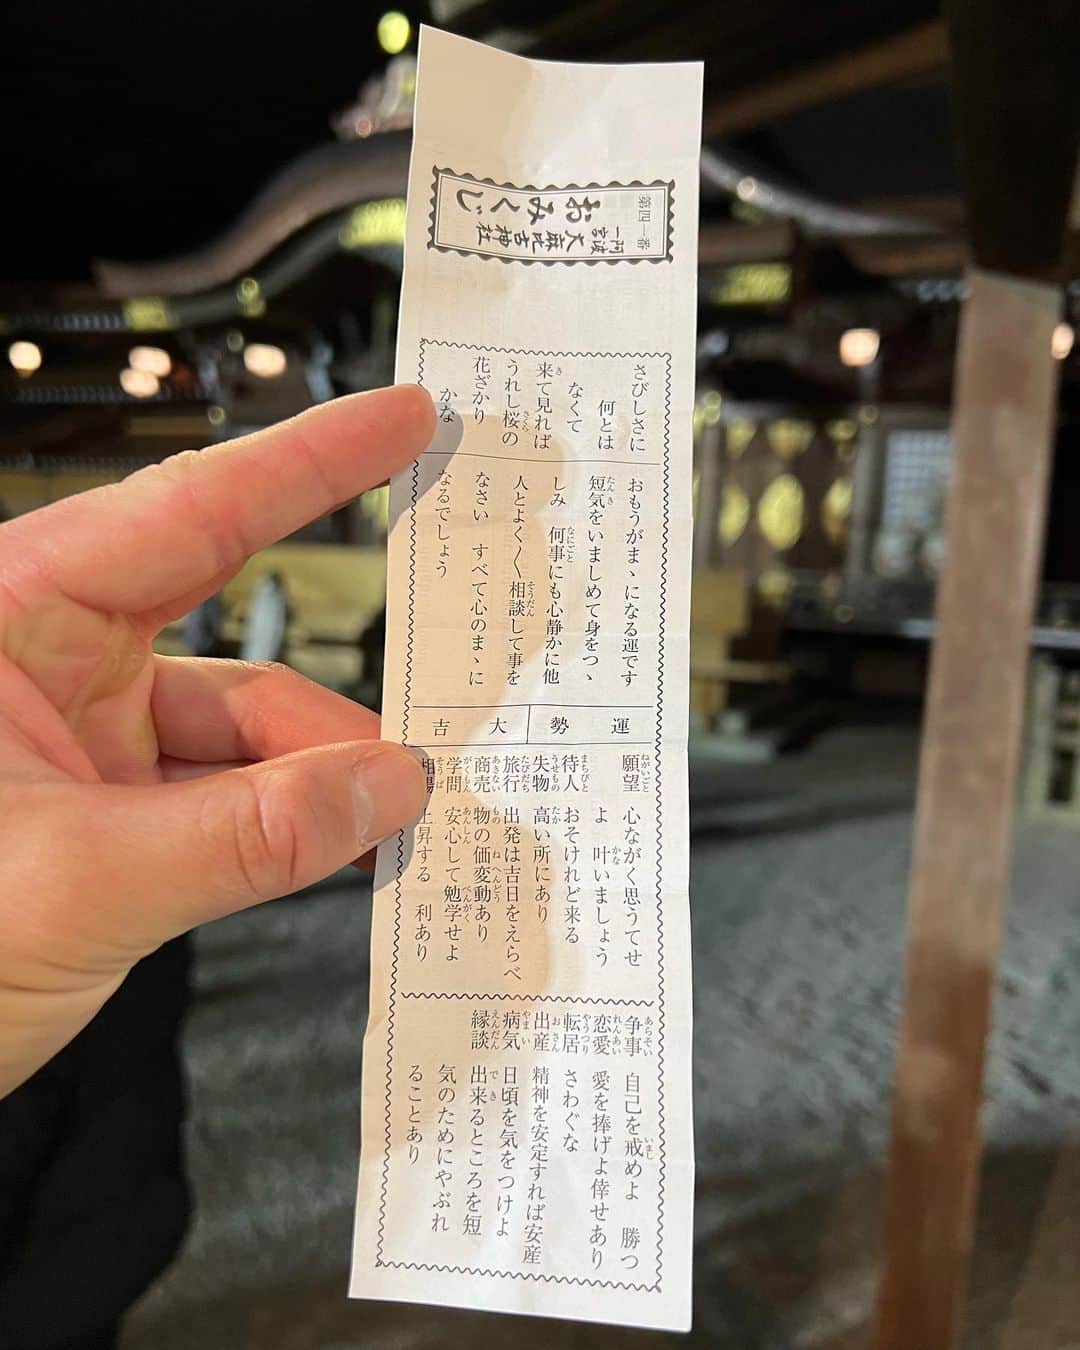 第四一番
おみくじ
阿波一宮 大麻比古神社
さびしさに
何とは
なくて
来て見れば
うれし桜の
花ざかり
かな
おもうがまゝになる運です
短気をいましめて身をつゝ
しみ 何事にも心静かに他
人とよく〱相談して事を
なさい すべて心のまゝに
なるでしょう
運勢 大吉
願望 心ながく思うてせ
よ 叶いましょう
待人 おそけれど来る
失物 高い所にあり
旅行 出発は吉日をえらべ
商売 物の価変動あり
学問 安心して勉学せよ
相場 上昇する 利あり
争事 自己を戒めよ 勝つ
恋愛 愛を捧げよ倖せあり
転居 さわぐな
出産 精神を安定すれば安産
病気 日頃を気をつけよ
縁談 出来るところを短
気のためにやぶれ
ることあり